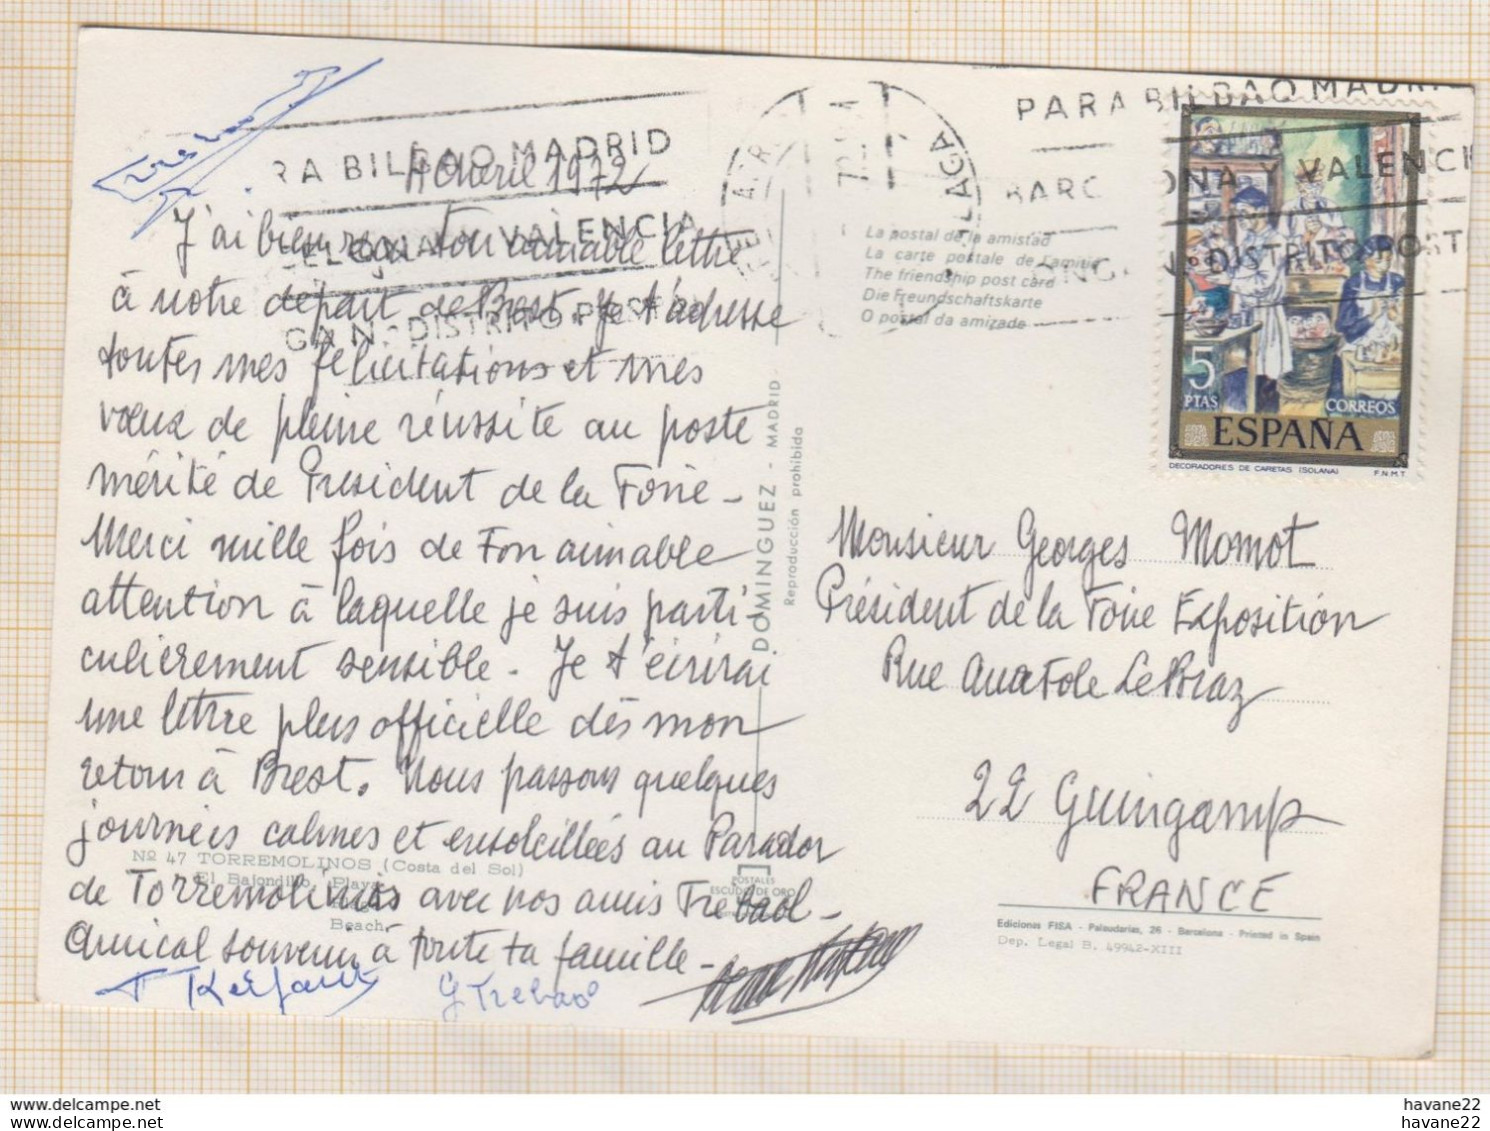 Trebaol
RA BILBAO MADRID
avril 1972
VALENCIA
DISTRITO POSTAL
J'ai bien reçu ton aimable lettre
à notre départ de Brest. Je t'adresse
toutes mes félicitations et mes
vœux de pleine réussite au poste
mérité de Président de la Foire -
Merci mille fois de ton aimable
attention à laquelle je suis parti-
culièrement sensible - Je t'écrirai
une lettre plus officielle dès mon
retour à Brest. Nous passons quelques
journées calmes et ensoleillées au Parador
de Torremolinos avec nos amis Trebaol -
Amical souvenir à toute ta famille -
G Trebaol
Nº 47 TORREMOLINOS (Costa del Sol)
El Bajondillo. Playa
Beach.
DOMINGUEZ - MADRID
Reproducción prohibida
POSTALES
ESCUDO DE ORO
MALAGA
La postal de la amistad
La carte postale de l'amitié
The friendship post card
Die Freundschaftskarte
O postal da amizade
PARA BILBAO MADRI
BARC ONA Y VALENCI
DISTRITO POST
5
PTAS
CORREOS
ESPAÑA
DECORADORES DE CARETAS (SOLANA)
F.N.M.T.
Monsieur Georges Momot
Président de la Foire Exposition
Rue Anatole Le Braz
22 Guingamp
FRANCE
Ediciones FISA - Palaudarias, 26 - Barcelona - Printed in Spain
Dep. Legal B. 49942-XIII
havane22
havane22
havane22
havane22